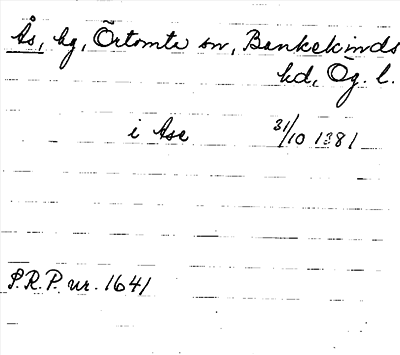 Ås, hg, Örtomta sn, Bankekinds
hd, Ög. l.
i Ase 31/10 1381
S.R.P. nr. 1641